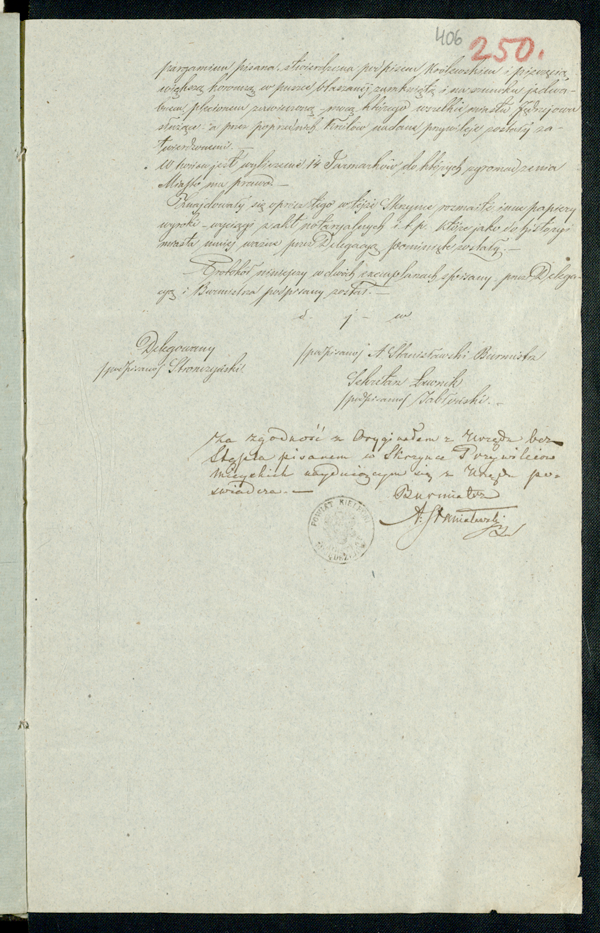 406 250.
pargaminie pisana, stwierdzona podpisem Królewskim i pieczęcią
większą koronną w puszce blaszanej zamkniętą i na sznurku jedwa-
bnym plecionem zawieszoną, mocą którego wszelkie miastu Jędrzejowu
służące, a przez poprzednich Królów nadane przywileje zostały za-
twierdzonemi. —
W końcu jest wyliczenie 14 Jarmarków do których zgromadzenia
Miasto ma prawo —
Znajdowały się oprócz tego w tejże Skrzynce rozmaite inne papiery
wyroki — wypisy z akt notarjalnych i t. p. które jako do historyi
miasta mniej ważne przez Delegacyą pominięte zostały. —
Protokół niniejszy w dwóch exemplarzach spisany, przez Delega-
cyą i Burmistrza podpisany został. —
d. j. w
Delegowany
/podpisano/ Stronczyński
/podpisano/ A. Stanisławski Burmistrz
Sekretarz Ławnik
/podpisano/ Jabłoński. —
Za zgodność z Oryginałem z Urzędu bez
Stępla pisanem w Skrzynce Przywilejów
Miejskich znajdującym się z Urzędu po-
świadcza. —
Burmistrz
A. Stanisławski
POWIAT KIELECKI